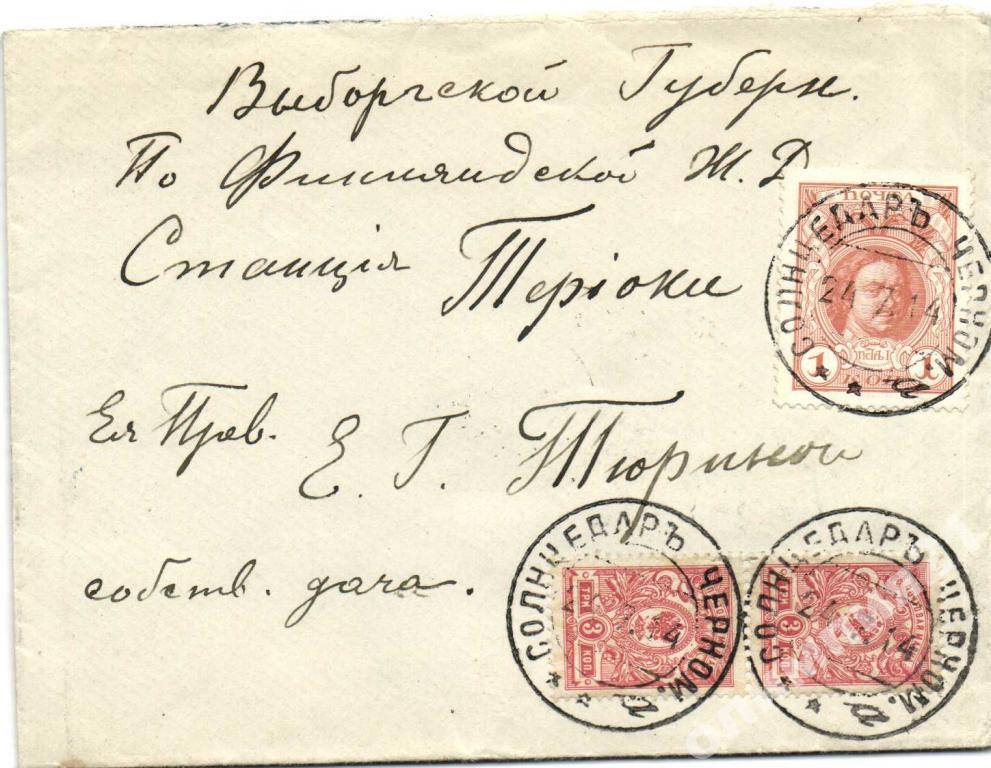 Выборгской Губерн.
По Финляндской Ж. Д
Станція Теріоки
Ея Прев. Е. Г. Тюриной
собств. дача.
ПОЧТА
1 1
КОП
СОЛНЦЕДАРЪ ЧЕРНОМ.
24 7 14
а
СОЛНЦЕДАРЪ ЧЕРНОМ.
7.14
а
ТРИ 3 КОП
СОЛНЦЕДАРЪ ЧЕРНОМ.
24 14
а
ТРИ 3 КОП